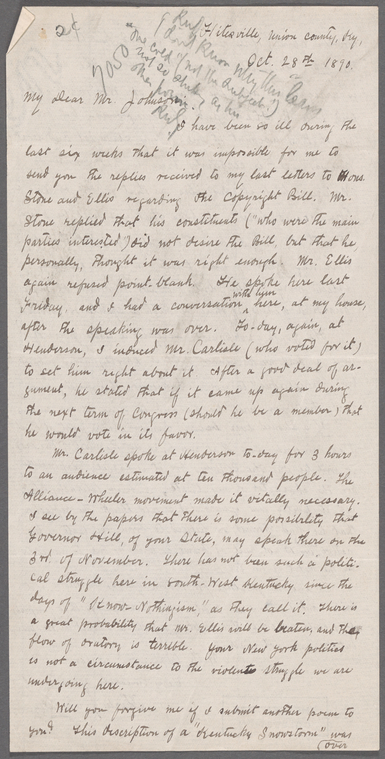 2¢
Hitesville, Union County, Ky,
Oct. 28th 1890.
7050
My Dear Mr. Johnson:
I have been so ill during the
last six weeks that it was impossible for me to
send you the replies received to my last letters to Hons.
Stone and Ellis regarding the Copyright Bill. Mr.
Stone replied that his constituents ("who were the main
parties interested") did not desire the Bill, but that he,
personally, thought it was right enough. Mr. Ellis
again refused point-blank. He spoke here last
Friday, and I had a conversation with him here, at my house,
after the speaking was over. To-day, again, at
Henderson, I induced Mr. Carlisle (who voted for it)
to set him right about it. After a good deal of ar-
gument, he stated that if it came up again during
the next term of Congress (should he be a member) that
he would vote in its favor.
Mr. Carlisle spoke at Henderson to-day for 3 hours
to an audience estimated at ten thousand people. The
Alliance-Wheeler movement made it vitally necessary.
I see by the papers that there is some possibility that
Governor Hill, of your State, may speak there on the
3rd of November. There has not been such a politi-
cal struggle here in South-West Kentucky since the
days of "Know-Nothingism," as they call it. There is
a great probability that Mr. Ellis will be beaten, and the
flow of oratory is terrible. Your New York politics
is not a circumstance to the violent struggle we are
undergoing here.
Will you forgive me if I submit another poem to
you? This description of a "Kentucky Snowstorm" was
(over